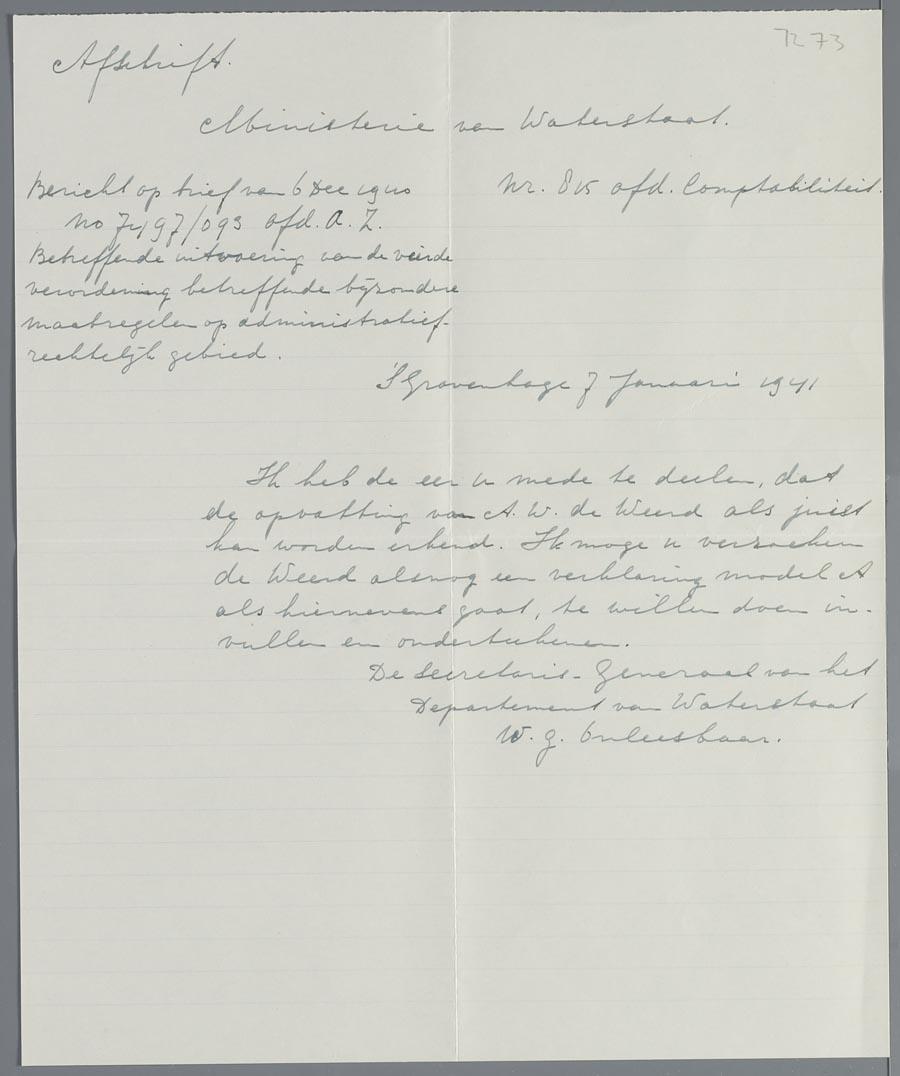 7273
Afschrift.
Ministerie van Waterstaat.
Bericht op brief van 6 Dec 1940
Nr. 815 afd. Comptabiliteit.
no 7497/093 afd. A. Z.
Betreffende uitvoering van de vierde
verordening betreffende bijzondere
maatregelen op administratief-
rechtelijk gebied.
'S Gravenhage 7 Januari 1941
Ik heb de eer u mede te deelen, dat
de opvatting van A. W. de Weerd als juist
kan worden erkend. Ik moge u verzoeken
de Weerd alsnog een verklaring model A
als hiernevens gaat, te willen doen in-
vullen en onderteekenen.
De Secretaris-Generaal van het
Departement van Waterstaat
W. g.